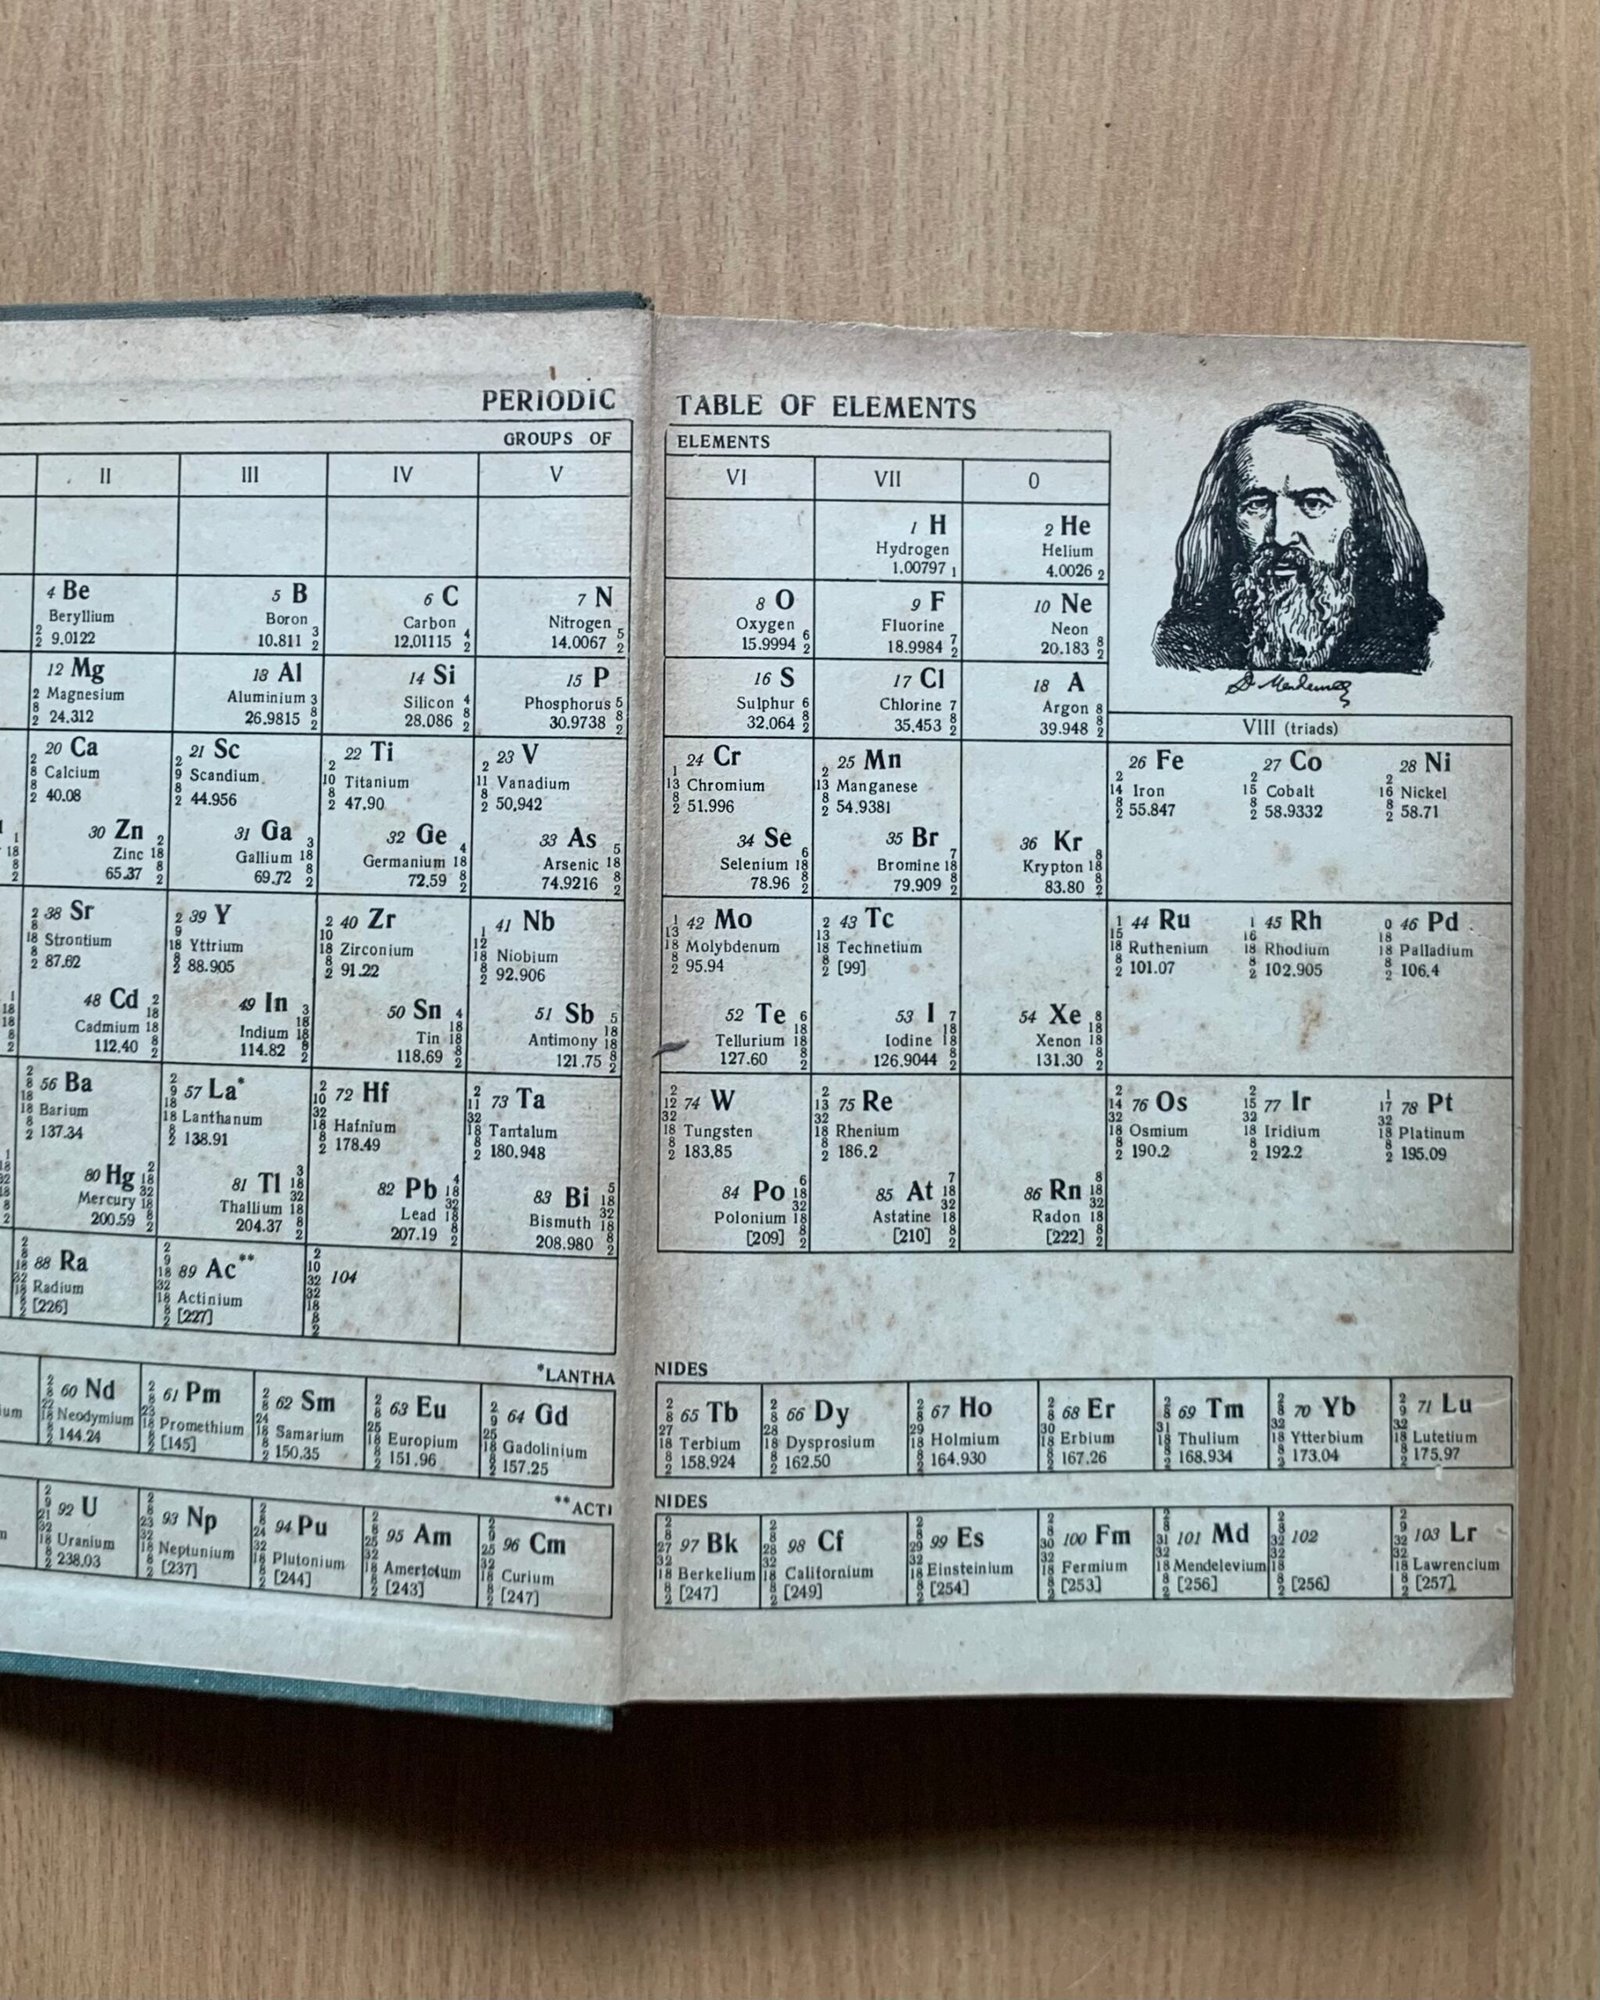 PERIODIC TABLE OF ELEMENTS
GROUPS OF ELEMENTS
II III IV V VI VII 0
1 H 2 He
Hydrogen Helium
1.00797 1 4.0026 2
4 Be 5 B 6 C 7 N 8 O 9 F 10 Ne
Beryllium Boron Carbon Nitrogen Oxygen Fluorine Neon
2 2 9.0122 10.811 3 2 12.01115 4 2 14.0067 5 2 15.9994 6 2 18.9984 7 2 20.183 8 2
12 Mg 13 Al 14 Si 15 P 16 S 17 Cl 18 A
2 Magnesium Aluminium 3 Silicon 4 Phosphorus 5 Sulphur 6 Chlorine 7 Argon 8
8 2 24.312 26.9815 8 2 28.086 8 2 30.9738 8 2 32.064 8 2 35.453 8 2 39.948 8 2
VIII (triads)
20 Ca 21 Sc 22 Ti 23 V 24 Cr 25 Mn 26 Fe 27 Co 28 Ni
2 8 Calcium 2 9 Scandium 2 10 Titanium 2 11 Vanadium 1 13 Chromium 2 13 Manganese 2 14 Iron 2 15 Cobalt 2 16 Nickel
8 2 40.08 8 2 44.956 8 2 47.90 8 2 50,942 8 2 51.996 8 2 54.9381 8 2 55.847 8 2 58.9332 8 2 58.71
30 Zn 2 31 Ga 3 32 Ge 4 33 As 5 34 Se 6 35 Br 7 36 Kr 8
Zinc 18 Gallium 18 Germanium 18 Arsenic 18 Selenium 18 Bromine 18 Krypton 18
65.37 8 2 69.72 8 2 72.59 8 2 74.9216 8 2 78.96 8 2 79.909 8 2 83.80 8 2
2 8 38 Sr 2 9 39 Y 2 10 40 Zr 1 12 41 Nb 1 13 42 Mo 2 13 43 Tc 1 15 44 Ru 1 16 45 Rh 0 18 46 Pd
18 Strontium 18 Yttrium 18 Zirconium 18 Niobium 18 Molybdenum 18 Technetium 18 Ruthenium 18 Rhodium 18 Palladium
8 2 87.62 8 2 88.905 8 2 91.22 8 2 92.906 8 2 95.94 8 2 [99] 8 2 101.07 8 2 102.905 8 2 106.4
48 Cd 2 18 49 In 3 50 Sn 4 51 Sb 5 52 Te 6 53 I 7 54 Xe 8
Cadmium 18 Indium 18 18 Tin 18 18 Antimony 18 18 Tellurium 18 18 Iodine 18 18 Xenon 18 18
112.40 8 2 114.82 8 2 118.69 8 2 121.75 8 2 127.60 8 2 126.9044 8 2 131.30 8 2
2 8 56 Ba 2 9 57 La* 2 10 72 Hf 2 11 73 Ta 2 12 74 W 2 13 75 Re 2 14 76 Os 2 15 77 Ir 1 17 78 Pt
18 18 Barium 18 18 Lanthanum 32 18 Hafnium 32 18 Tantalum 32 18 Tungsten 32 18 Rhenium 32 18 Osmium 32 18 Iridium 32 18 Platinum
8 2 137.34 8 2 138.91 8 2 178.49 8 2 180.948 8 2 183.85 8 2 186.2 8 2 190.2 8 2 192.2 8 2 195.09
80 Hg 2 18 81 Tl 3 18 82 Pb 4 18 83 Bi 5 18 84 Po 6 18 85 At 7 18 86 Rn 8 18
Mercury 32 18 Thallium 32 18 Lead 32 18 Bismuth 32 18 Polonium 32 18 Astatine 32 18 Radon 32 18
200.59 8 2 204.37 8 2 207.19 8 2 208.980 8 2 [209] 8 2 [210] 8 2 [222] 8 2
2 8 18 88 Ra 2 9 18 89 Ac** 2 10 32 104
32 18 Radium 32 18 Actinium 32 18
8 2 [226] 8 2 [227] 8 2
*LANTHANIDES
2 8 60 Nd 2 8 61 Pm 2 8 62 Sm 2 8 63 Eu 2 9 64 Gd 2 8 65 Tb 2 8 66 Dy 2 8 67 Ho 2 8 68 Er 2 8 69 Tm 2 8 70 Yb 2 9 71 Lu
ium 22 18 Neodymium 23 18 Promethium 24 18 Samarium 25 18 Europium 25 18 Gadolinium 27 18 Terbium 28 18 Dysprosium 29 18 Holmium 30 18 Erbium 31 18 Thulium 32 18 Ytterbium 32 18 Lutetium
8 2 144.24 8 2 [145] 8 2 150.35 8 2 151.96 8 2 157.25 8 2 158.924 8 2 162.50 8 2 164.930 8 2 167.26 8 2 168.934 8 2 173.04 8 2 175.97
**ACTINIDES
2 9 21 92 U 2 8 23 93 Np 2 8 24 94 Pu 2 8 25 95 Am 2 9 25 96 Cm 2 8 27 97 Bk 2 8 28 98 Cf 2 8 29 99 Es 2 8 30 100 Fm 2 8 31 101 Md 2 8 32 102 2 9 32 103 Lr
32 18 Uranium 32 18 Neptunium 32 18 Plutonium 32 18 Americium 32 18 Curium 32 18 Berkelium 32 18 Californium 32 18 Einsteinium 32 18 Fermium 32 18 Mendelevium 32 18 32 18 Lawrencium
8 2 238.03 8 2 [237] 8 2 [244] 8 2 [243] 8 2 [247] 8 2 [247] 8 2 [249] 8 2 [254] 8 2 [253] 8 2 [256] 8 2 [256] 8 2 [257]